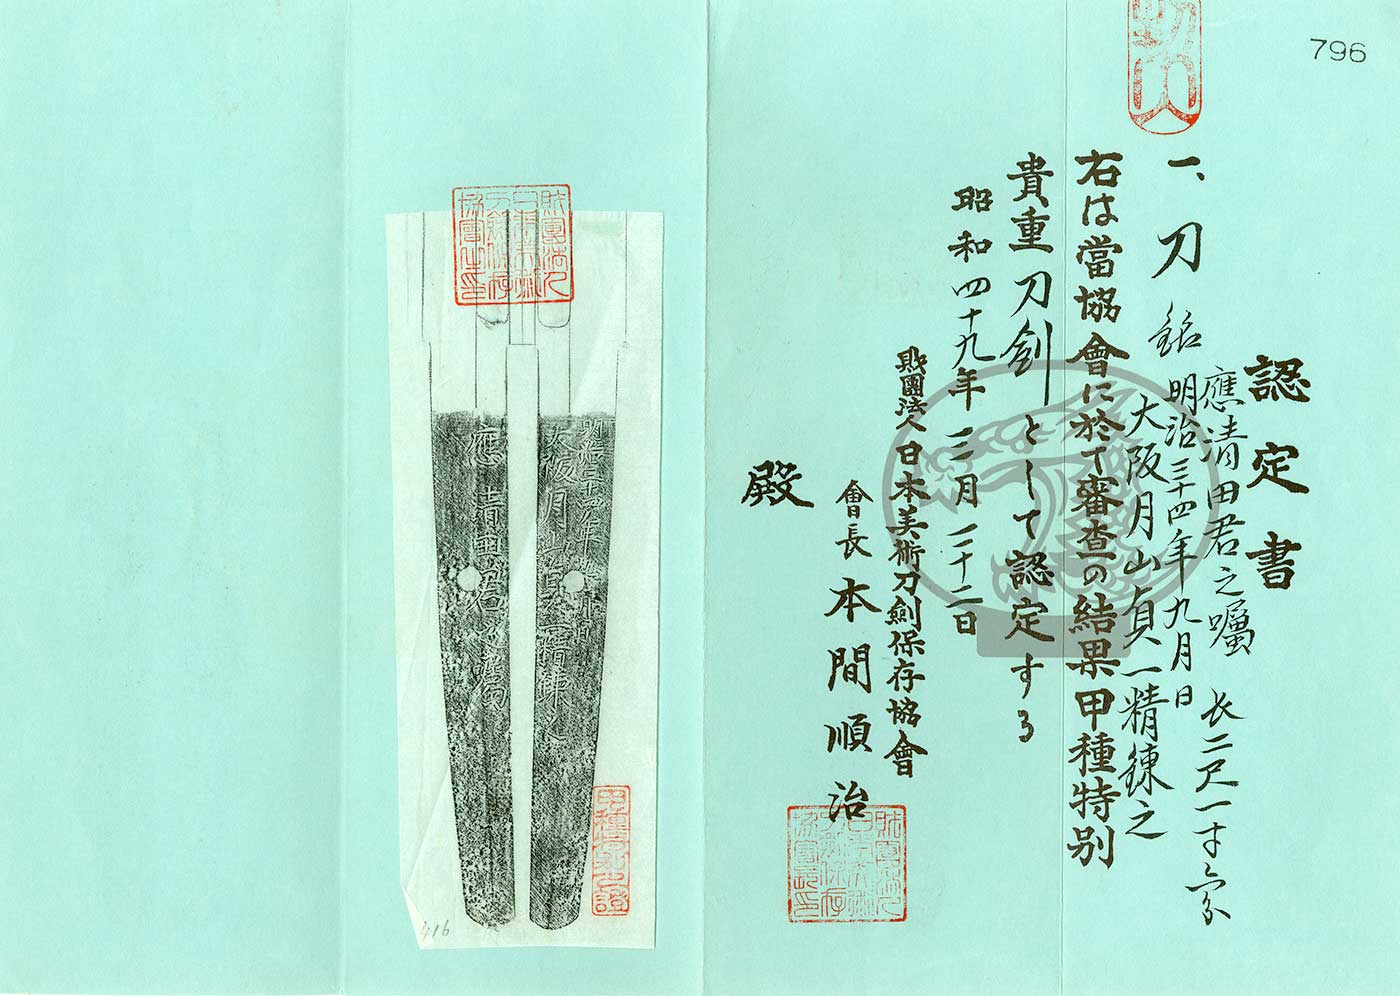 796
認定書
一、刀 銘
應清田君之囑
明治三十四年九月日
大阪月山貞一精錬之
长二尺一寸
右は當協會に於て審査の結果甲種特別
貴重刀剣として認定する
昭和四十九年三月二十二日
財團法人日本美術刀劍保存協會
會長 本間順治
殿
大阪月山貞一精錬之
應清田君之囑
甲種
416